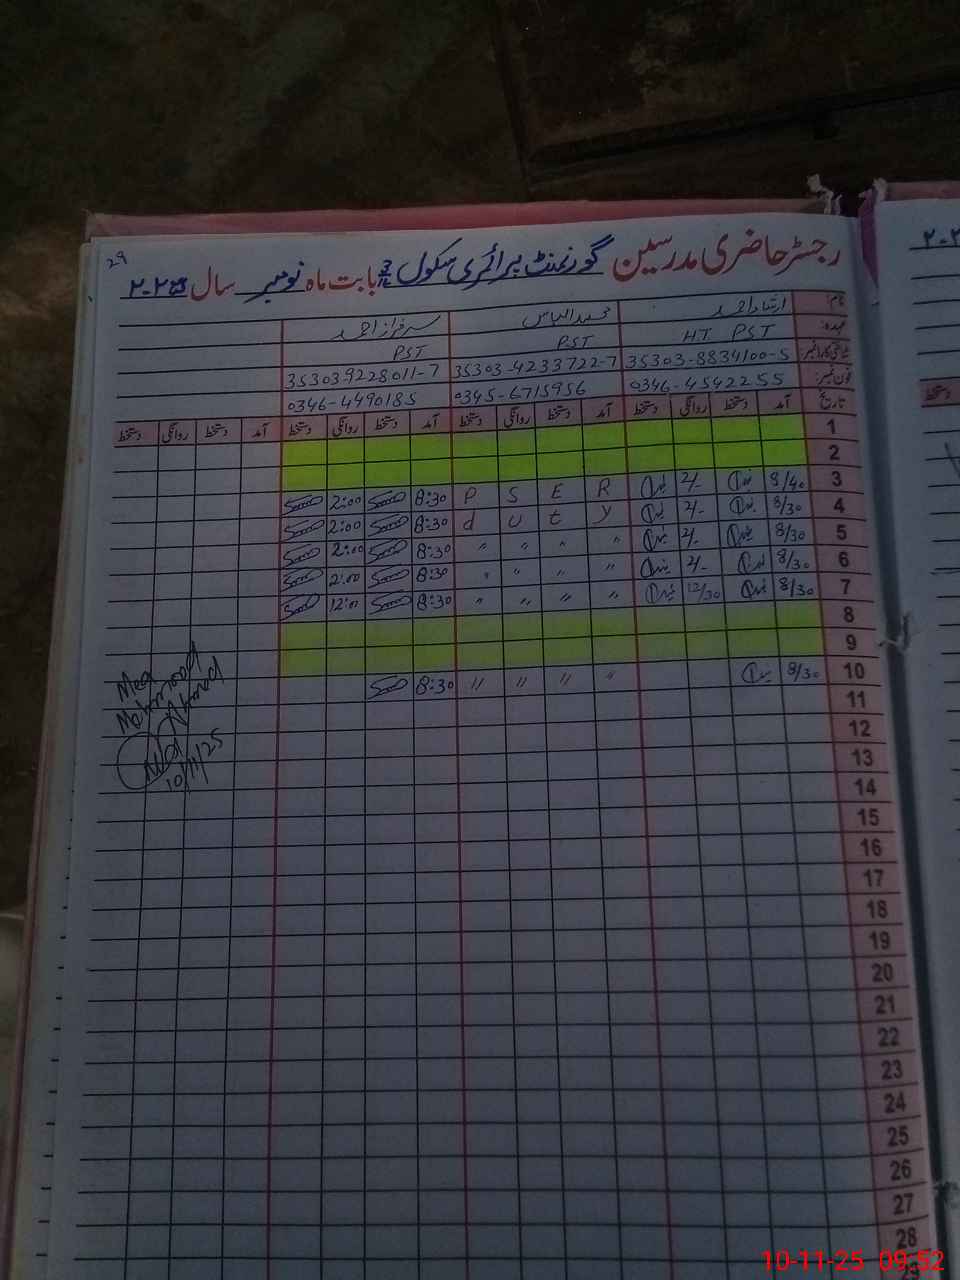 29
رجسٹر حاضری مدرسین گورنمنٹ پرائمری سکول بابت ماہ نومبر سال ۲۰۲۵
نام: ارشاد احمد محمد الیاس سرفراز احمد
عہدہ: HT PST PST PST
شناختی کارڈ نمبر 35303-8834100-5 35303-4233722-7 35303-9228011-7
فون نمبر: 0346-4542255 0345-6715956 0346-4490185
تاریخ آمد دستخط روانگی دستخط آمد دستخط روانگی دستخط آمد دستخط روانگی دستخط آمد دستخط روانگی دستخط
1
2
3 8/40 2/- P S E R 8:30 2:00
4 8/30 2/- d u t y 8:30 2:00
5 8/30 2/- " " " " 8:30 2:00
6 8/30 2/- " " " " 8:30 2:00
7 8/30 12/30 " " " " 8:30 12:00
8
9
10 8/30 " " " " 8:30
Mea
Mehmood
Ahmad
10/11/25
11
12
13
14
15
16
17
18
19
20
21
22
23
24
25
26
27
28
10-11-25 09:52